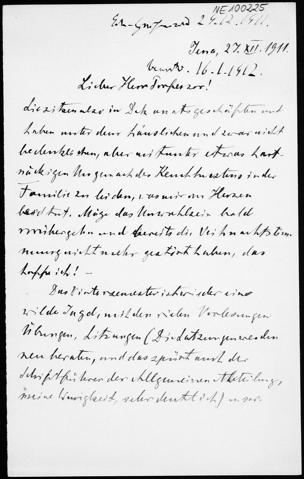 NE100225
29.12.1911.
Jena, 27. XII. 1911.
16.1.1912.
Lieber Herr Professor!
Sie sitzen also in Dekanatsgeschäften und
haben unter dem häuslichen und zwar nicht
bedenklichen, aber mitunter etwas hart-
näckigen Ungemach des Keuchhustens in der
Familie zu leiden, was mir am Herzen
Möge das bald
vorübergehn und bereits die Weihnachtsstim-
mung nicht mehr gestört haben, das
hoffe ich! —
Das Wintersemester ist wieder eine
wilde Jagd, mit den vielen Vorlesungen
Übungen, Sitzungen (Die Satzungen werden
neu beraten, und das spürt auch der
Schriftführer der Allgemeinen Abteilung,
meine Wenigkeit, sehr deutlich) unser